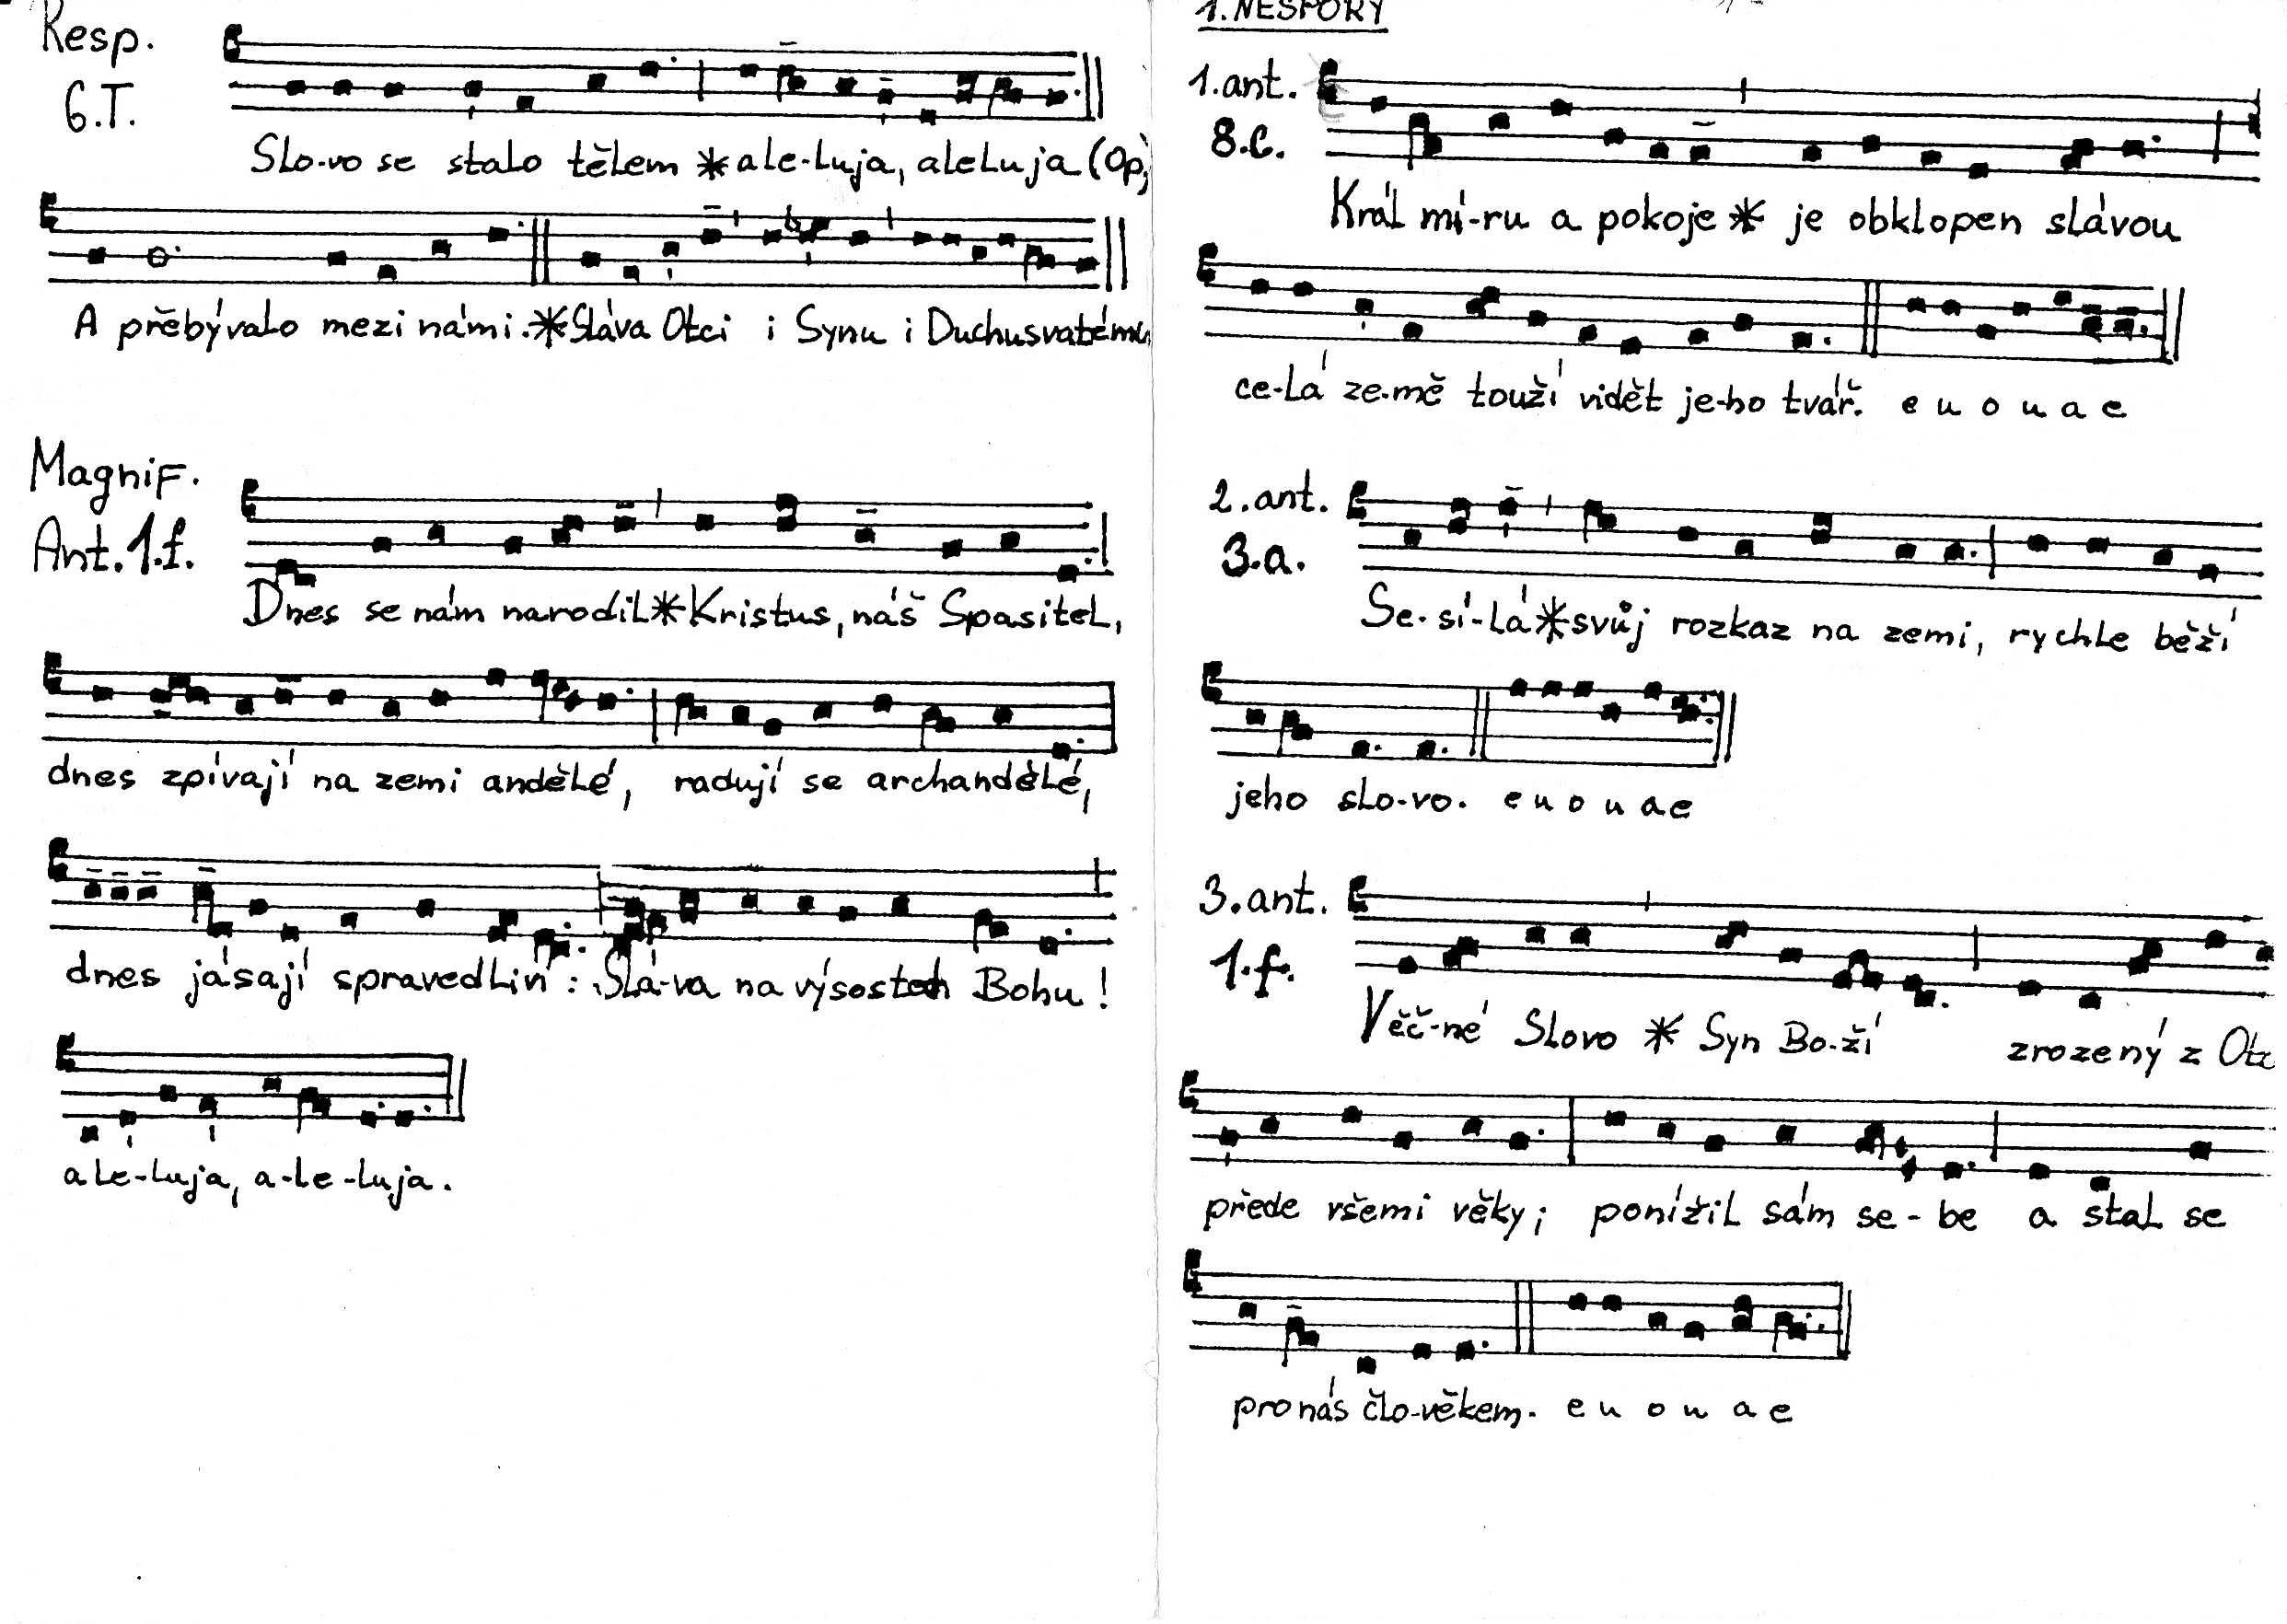 Resp.
6.T.
Slo-vo se stalo tělem * ale-luja, aleluja (Op.)
A přebývalo mezi námi. * Sláva Otci i Synu i Duchu svatému
Magnif.
Ant. 1.f.
Dnes se nám narodil * Kristus, náš Spasitel,
dnes zpívají na zemi andělé, radují se archandělé,
dnes jásají spravedliví: Slá-va na výsostech Bohu!
alé-luja, a-le-luja.
1. NEŠPORY
1. ant.
8.G.
Král mí-ru a pokoje * je obklopen slávou
ce-lá ze-mě touží vidět je-ho tvář. e u o u a e
2. ant.
3.a.
Se-sí-lá * svůj rozkaz na zemi, rychle běží
jeho slo-vo. e u o u a e
3. ant.
1.f.
Věč-né Slovo * Syn Bo-ží zrozený z Otc
přede všemi věky; ponížil sám se-be a stal se
pro nás člo-věkem. e u o u a e